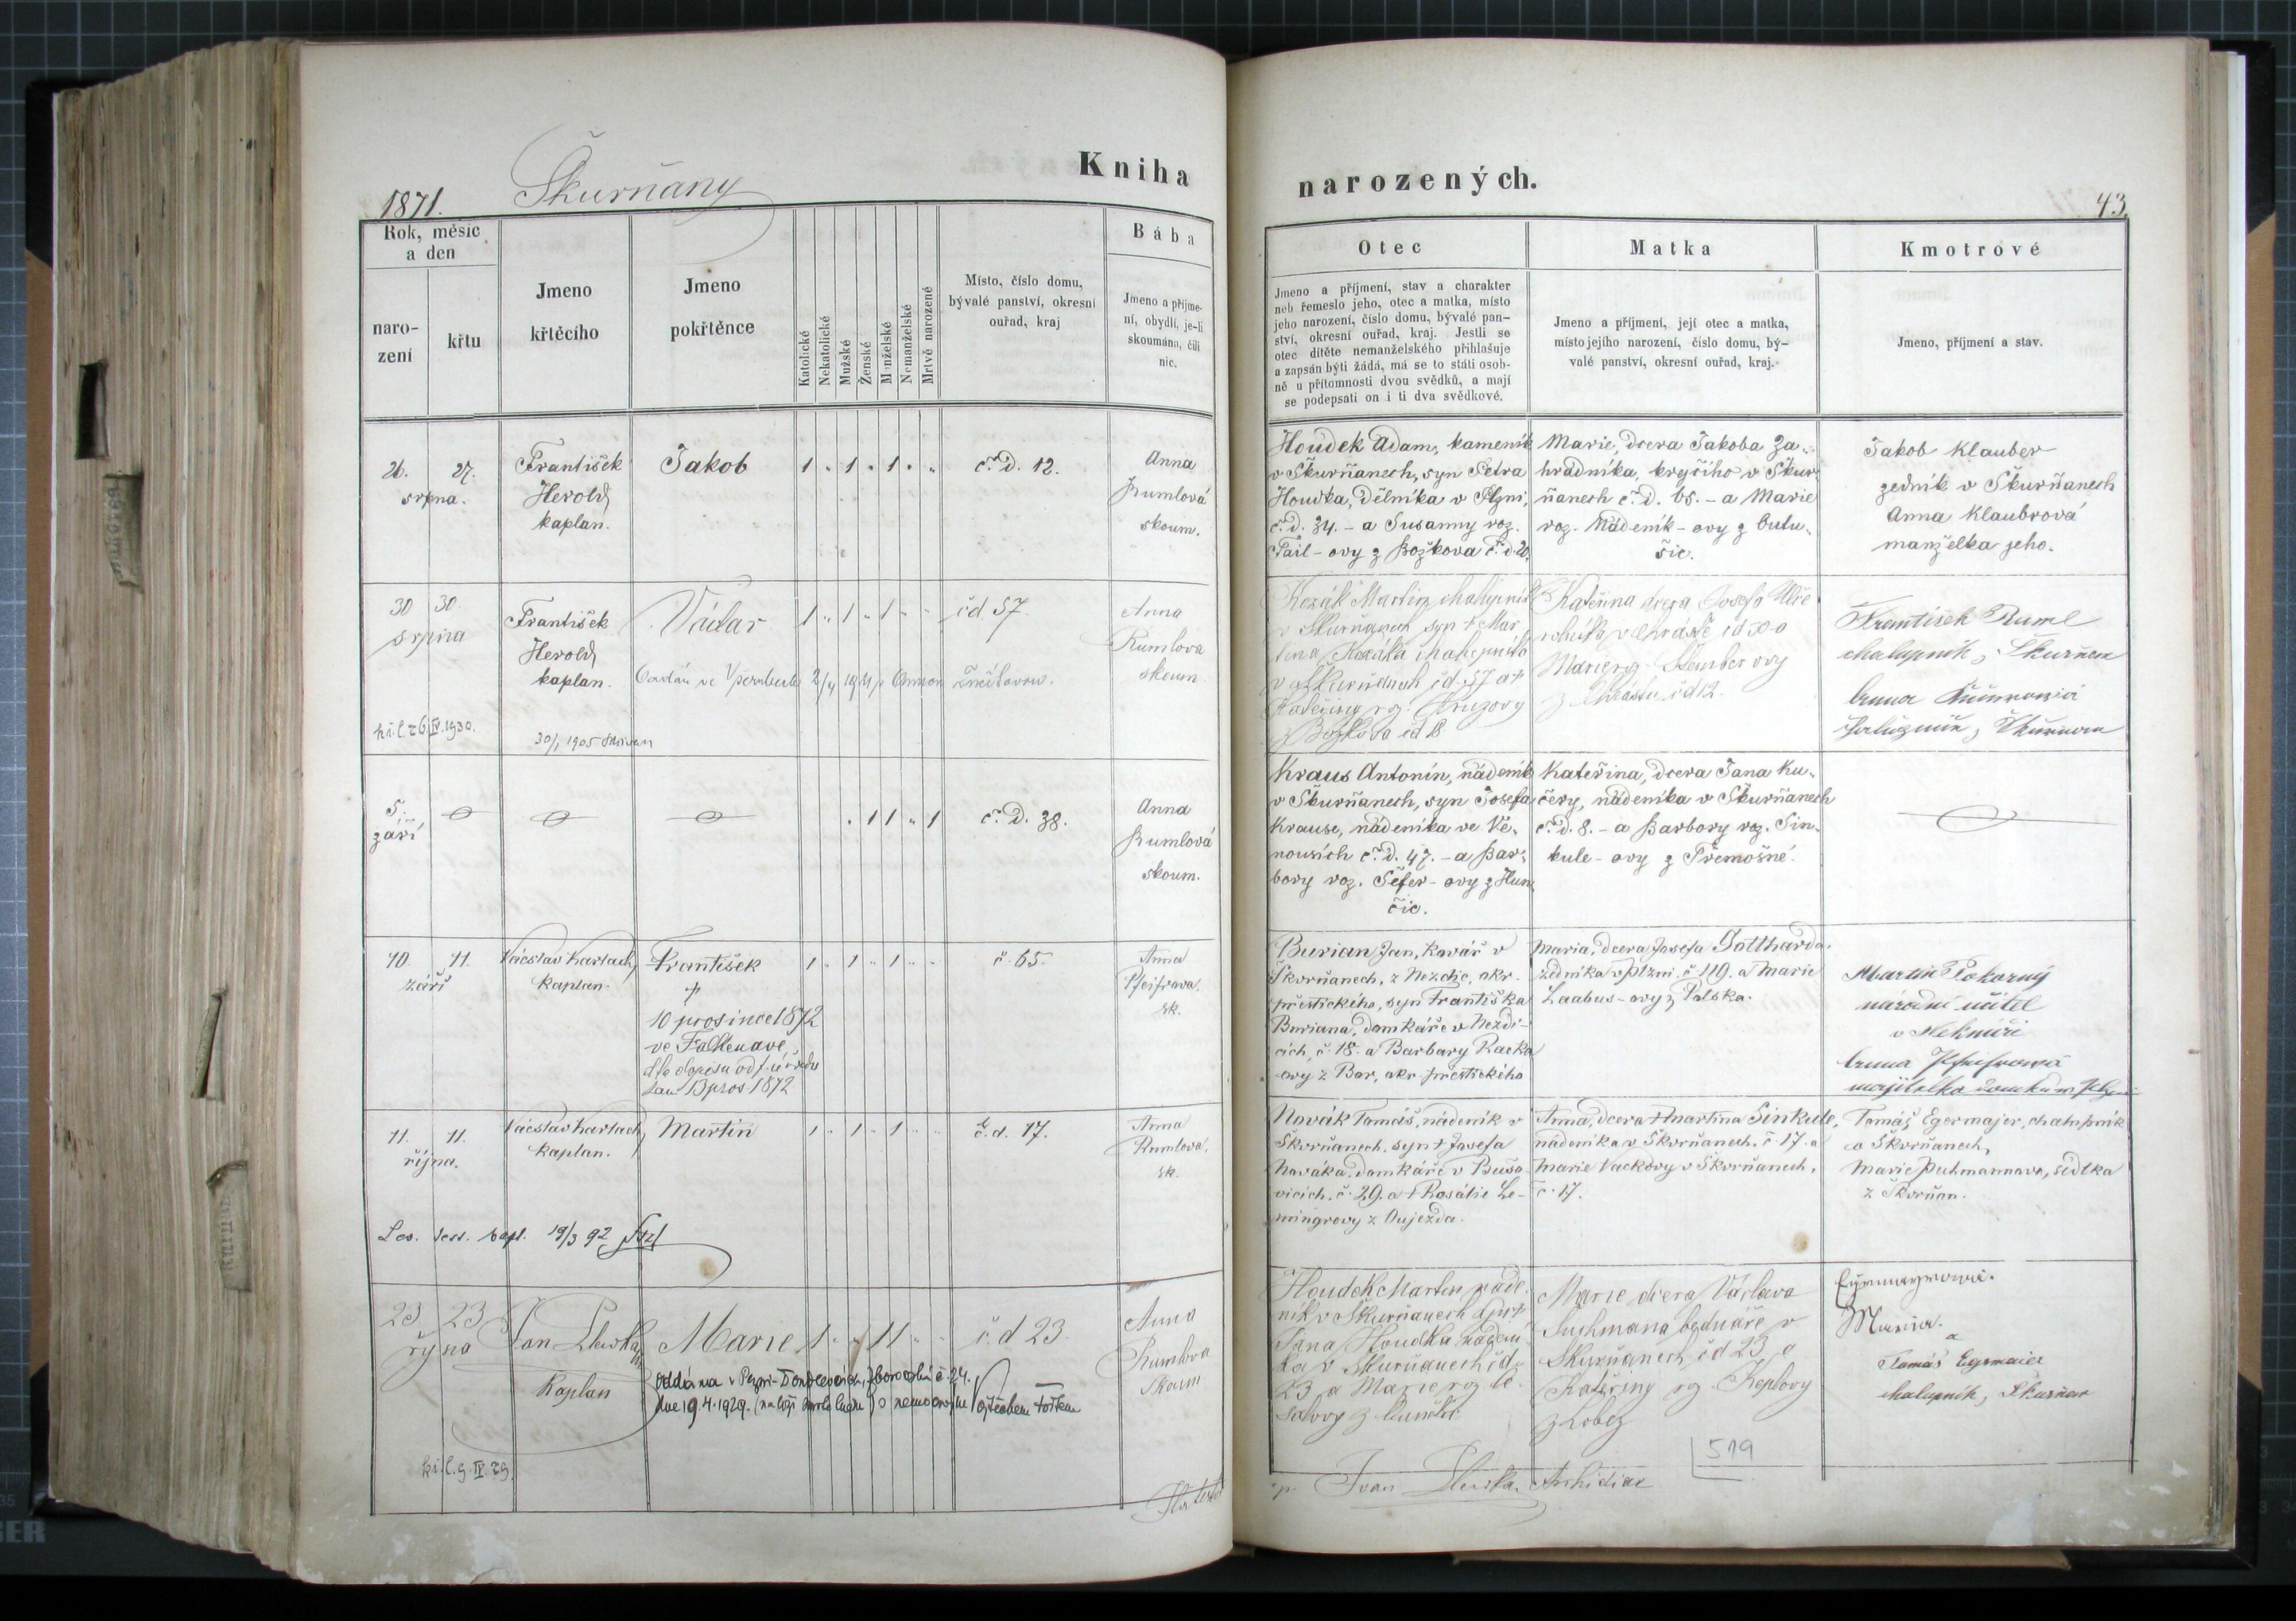 1871.
Škurňany
Kniha
narozených.
43.
Rok, měsíc
a den
naro-
zení
křtu
Jmeno
křtěcího
Jmeno
pokřtěnce
Katolické
Nekatolické
Mužské
Ženské
Manželské
Nemanželské
Mrtvě narozené
Místo, číslo domu,
bývalé panství, okresní
ouřad, kraj
Bába
Jmeno a příjme-
ní, obydlí, je-li
skoumána, čili
nic.
Otec
Jmeno a příjmení, stav a charakter
neb řemeslo jeho, otec a matka, místo
jeho narození, číslo domu, bývalé pan-
ství, okresní ouřad, kraj. Jestli se
otec dítěte nemanželského přihlašuje
a zapsán býti žádá, má se to státi osob-
ně u přítomnosti dvou svědků, a mají
se podepsati on i ti dva svědkové.
Matka
Jmeno a příjmení, její otec a matka,
místo jejího narození, číslo domu, bý-
valé panství, okresní ouřad, kraj.
Kmotrové
Jmeno, příjmení a stav.
26. 27.
srpna.
František
Herold
kaplan.
Jakob
1 „ 1 „ 1 „ „
č. D. 12.
Anna
Rumlová
skoum.
Houdek Adam, kameník
v Škurňanech, syn Petra
Houdka, dělníka v Plzni,
č. D. 34. – a Susanny roz.
z Božkova č. d. 20.
Marie, dcera Jakoba Za-
hradníka, krejčího v Škur-
ňanech č. D. 65. – a Marie
roz. Nádeník-ovy z Lutu-
šic.
Jakob Klauber
zedník v Škurňanech
Anna Klaubrová
manželka jeho.
30 30.
srpna
František
Herold
kaplan.
Václav
1 „ 1 „ 1 „ „
čd 57.
Anna
Rumlova
skoum.
kř. l. 26. IV. 1930.
30/1 1905
Kozák Martin chalupník
v Škurňanech syn † Mar
tina Kozáka chalupníka
v Škurňanech čd. 57 a †
Kateřiny rz.
z Božkova čd 18
Kateřina dcera Josefa
Marie rz.
z Chrástu čd 12.
František Ruml
chalupník, Škurňan
Anna
5.
září
„ 1 1 „ 1
č. D. 38.
Anna
Rumlová
skoum.
Kraus Antonín, nádeník
v Škurňanech, syn Josefa
Krause, nádeníka ve Vě-
nousích č. D. 47. – a Bar-
bory roz. Šefer-ovy z Hun-
čic.
Kateřina, dcera Jana Ku-
čery, nádeníka v Škurňanech
č. D. 8. – a Barbory roz. Sin-
kule-ovy z Třemošné.
10. 11.
září
Vácslav Karlach,
kaplan.
František
†
10 prosince 1872
ve Falkenavě
dle dopisu od f. úřadu
dan 13 pros. 1872
1 „ 1 „ 1 „ „
č. 65.
Anna
Pfeifrova.
sk.
Burian Jan, kovář v
Škvrňanech, z Nezdic, okr.
přestického, syn Františka
Buriana, domkáře v Nezdi-
cích, č. 18. a Barbary Racka
ovy z Bor, okr. přestického
Maria, dcera Josefa Gottharda.
zedníka v Plzni. č. 119. a Marie
Laabus-ovy z Polska.
Martin Pokorný
národní učitel
v Nekmíři
Anna Pfeifrová
11. 11.
října.
Vácslav Karlach,
kaplan.
Martin
1 „ 1 „ 1 „ „
č. d. 17.
Anna
Rumlova,
sk.
19/3 92
Novák Tomáš, nádeník v
Škvrňanech, syn † Josefa
Nováka, domkáře v Bušo-
vicích. č. 29. a † Rosálie Le-
mingrovy z Oujezda.
Anna, dcera † Martina Sinkule,
nádeníka v Škvrňanech. č. 17. a
Marie Vackovy v Škvrňanech,
č. 17.
Tomáš Egermajer, chalupník
v Škvrňanech,
Marie Puhmannova, sedlka
z Škvrňan.
23 23
řijna
Jan Zlevska
Kaplan
Marie
1 „ „ 1 1 „ „
č. d 23.
Anna
Rumlova
skoum
oddána v Plzni-Doudlevcích, Zborovská č. 24.
dne 19. 4. 1929. Vojtěchem Toškem
kř. l. 9. IV. 29.
Houdek Martin náde-
ník v Škurňanech syn †
Jana Houdka nádení
ka v Škurňanech čd.
23 a Marie rz
Marie dcera Václava
Suchmana bednáře v
Škurňanech čd 23 a
Kateřiny rz. Keplovy
z Lobez
Maria.
a
Tomáš Egrmaier
chalupník, Škurňan
519